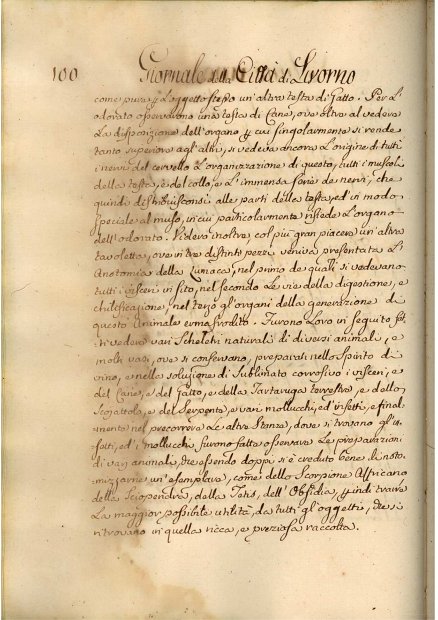 100 Giornale della Città di Livorno
come pure p l'oggetto stesso un'altra testa di Gatto. Per l'
odorato osservarono una testa di Cane, ove oltre al vedersi
la disposizione dell'organo p cui singolarmente si rende
tanto superiore agl'altri, si vedeva ancora l'origine di tutti
i nervi del cervello l'organizzazione di questo, tutti i muscoli
della testa, e del collo, e l'immensa serie de nervi, che
quindi distribuisconsi alle parti della testa, ed in modo
speciale al muso, in cui particolarmente risiede l'organo
dell'odorato. Videro inoltre, col più gran piacere un'altra
tavoletta, ove in tre distinti pezzi veniva presentata l'
Anatomia della Lumaca, nel primo de quali si vedevano
tutti i visceri in sito, nel secondo le vie della digestione, e
chilificazione, nel terzo gl'organi della generazione di
questo Animale ermafrodito. Furono loro in seguito fat
ti vedere vari Scheletri naturali di diversi animali, e
molti vasi, ove si conservano, preparati nello Spirito di
vino, e nella soluzione di Sublimato corrosivo i visceri, e
del Cane, e del Gatto, e della Tartaruga terrestre, e dello
Scojattolo, e del Serpente, e vari molluschi, ed insetti, e final
mente nel precorrere le altre Stanze, dove si trovano gl'in
setti, ed i molluschi furono fatte osservare le preparazioni
di vari animali, che essendo doppi si è creduto bene anato
mizzarne un'esemplare, come dello Scorpione Affricano
della Scolpendra, della Tetis, dell' p quindi trarre
la maggior possibile utilità, da tutti gl'oggetti, che si
ritrovano in quella ricca, e preziosa raccolta.